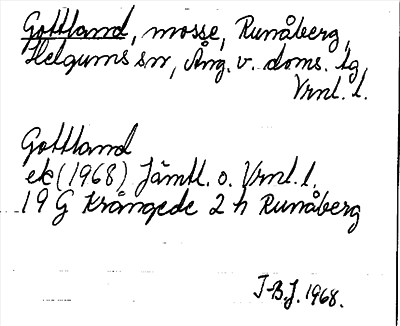 Gottland, mosse, Runåberg,
Helgums sn, Ång. v. doms. tg,
Vrnl. l.
Gottland
ek (1968) Jämtl. o. Vrnl. l.
19 G Krångede 2 h Runåberg
J-B.J. 1968.